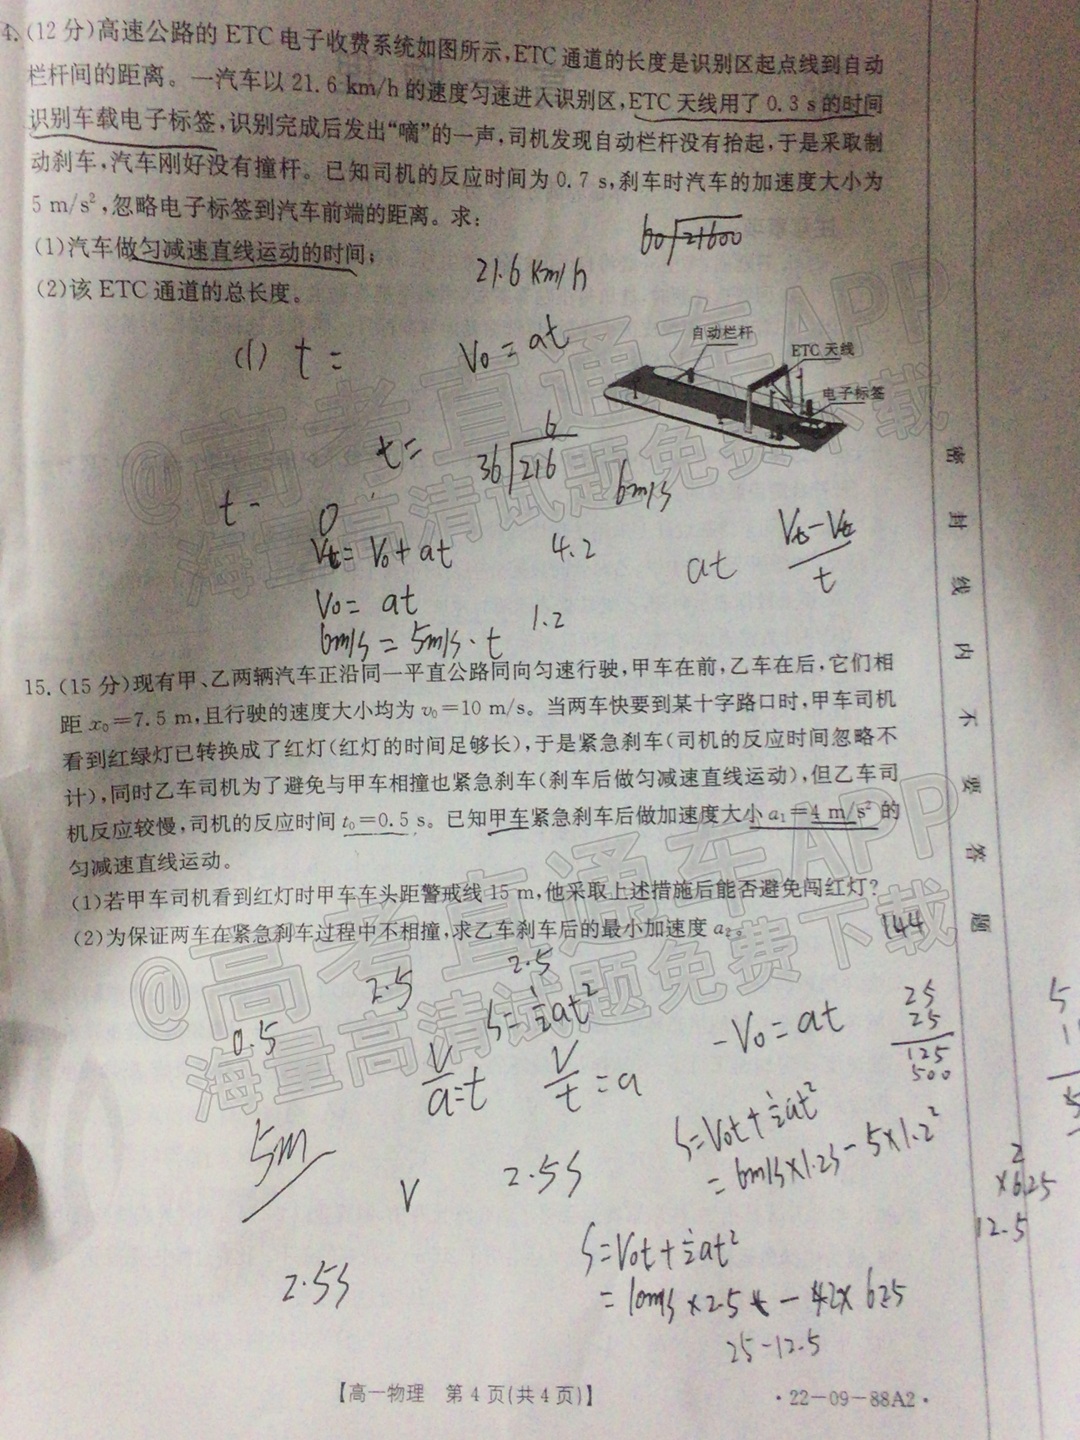 4.(12分)高速公路的ETC电子收费系统如图所示,ETC通道的长度是识别区起点线到自动
栏杆间的距离。一汽车以21.6 km/h的速度匀速进入识别区,ETC天线用了0.3 s的时间
识别车载电子标签,识别完成后发出“嘀”的一声,司机发现自动栏杆没有抬起,于是采取制
动刹车,汽车刚好没有撞杆。已知司机的反应时间为0.7 s,刹车时汽车的加速度大小为
5 m/s²,忽略电子标签到汽车前端的距离。求:
(1)汽车做匀减速直线运动的时间;
(2)该ETC通道的总长度。
60 21600
21.6 km/h
自动栏杆
ETC天线
电子标签
(1) t =
V₀ = at
t =
6
36 216
6m/s
t -
0
Vt = V₀ + at
4.2
at
Vt - Vt
t
V₀ = at
1.2
6m/s = 5m/s · t
15.(15分)现有甲、乙两辆汽车正沿同一平直公路同向匀速行驶,甲车在前,乙车在后,它们相
距x₀=7.5 m,且行驶的速度大小均为v₀=10 m/s。当两车快要到某十字路口时,甲车司机
看到红绿灯已转换成了红灯(红灯的时间足够长),于是紧急刹车(司机的反应时间忽略不
计),同时乙车司机为了避免与甲车相撞也紧急刹车(刹车后做匀减速直线运动),但乙车司
机反应较慢,司机的反应时间t₀=0.5 s。已知甲车紧急刹车后做加速度大小a₁=4 m/s²的
匀减速直线运动。
(1)若甲车司机看到红灯时甲车车头距警戒线15 m,他采取上述措施后能否避免闯红灯?
(2)为保证两车在紧急刹车过程中不相撞,求乙车刹车后的最小加速度a₂。
144
2.5
2.5
0.5
S = ½at²
-V₀ = at
25
25
125
500
V/a = t
V/t = a
S = V₀t + ½at²
= 6m/s × 1.2s - 5 × 1.2²
5m
V
2.5s
2
×6.25
12.5
2.5s
S = V₀t + ½at²
= 10m/s × 2.5
25 - 12.5
【高一物理 第4页(共4页)】
·22-09-88A2·
密封线内不要答题
@高考直通车APP
海量高清试题免费下载
@高考直通车APP
海量高清试题免费下载